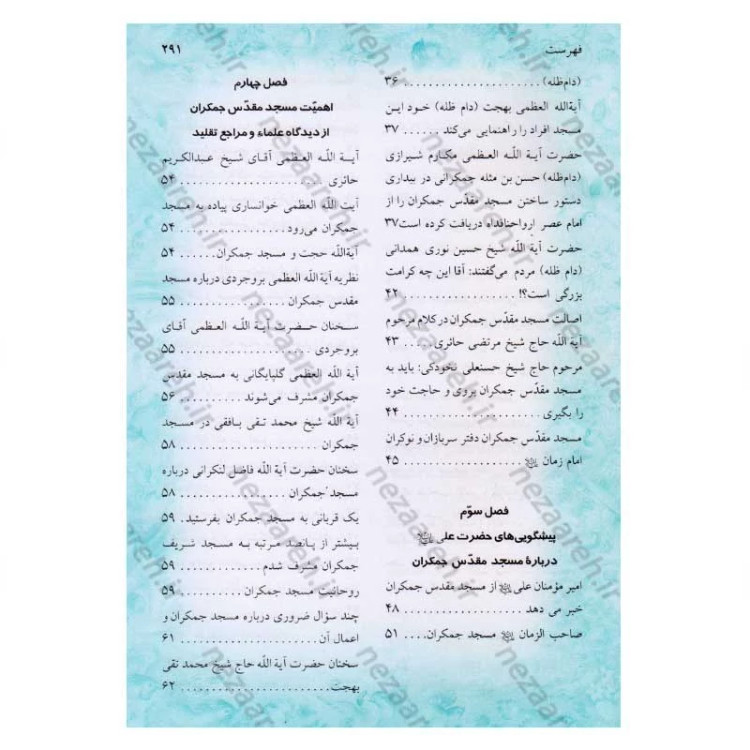 فهرست
۲۹۱
(دام‌ظله) . . . . . . . . . . . . . . . . . . . . ۳۶
آیةالله العظمی بهجت (دام ظله) خود این
مسجد افراد را راهنمایی می‌کند . . . . . . ۳۷
حضرت آیة اللّه العظمی مکارم شیرازی
(دام‌ظله) حسن بن مثله جمکرانی در بیداری
دستور ساختن مسجد مقدّس جمکران را از
امام عصر ارواحنافداه دریافت کرده است۳۷
حضرت آیة اللّه شیخ حسین نوری همدانی
(دام ظله) مردم می‌گفتند: آقا این چه کرامت
بزرگی است؟! . . . . . . . . . . . . . . . . ۴۲
اصالت مسجد مقدّس جمکران در کلام مرحوم
آیة اللّه حاج شیخ مرتضی حائری. . . . . ۴۳
مرحوم حاج شیخ حسنعلی نخودکی: باید به
مسجد مقدّس جمکران بروی و حاجت خود
را بگیری . . . . . . . . . . . . . . . . . . . . ۴۴
مسجد مقدّس جمکران دفتر سربازان و نوکران
امام زمان . . . . . . . . . . . . . . . . . . . ۴۵
فصل سوّم
پیشگویی‌های حضرت علی
دربارهٔ مسجد مقدّس جمکران
امیر مؤمنان علی از مسجد مقدس جمکران
خبر می دهد . . . . . . . . . . . . . . . . . ۴۸
صاحب الزمان مسجد جمکران. . . . ۵۱
فصل چهارم
اهمیّت مسجد مقدّس جمکران
از دیدگاه علماء و مراجع تقلید
آیة اللّه العظمی آقای شیخ عبدالکریم
حائری . . . . . . . . . . . . . . . . . . . . . ۵۴
آیت اللّه العظمی خوانساری پیاده به مسجد
جمکران می‌رود . . . . . . . . . . . . . . . ۵۴
آیةاللّه حجت و مسجد جمکران. . . . . . ۵۴
نظریه آیة اللّه العظمی بروجردی درباره مسجد
مقدس جمکران . . . . . . . . . . . . . . . ۵۵
سخنان حضرت آیة اللّه العظمی آقای
بروجردی . . . . . . . . . . . . . . . . . . . ۵۵
آیة اللّه العظمی گلپایگانی به مسجد مقدس
جمکران مشرف می‌شوند . . . . . . . . . . ۵۶
آیة اللّه شیخ محمد تقی بافقی در مسجد
جمکران . . . . . . . . . . . . . . . . . . . . ۵۸
سخنان حضرت آیة اللّه فاضل لنکرانی درباره
مسجد جمکران . . . . . . . . . . . . . . . ۵۸
یک قربانی به مسجد جمکران بفرستید. ۵۹
بیشتر از پانصد مرتبه به مسجد شریف
جمکران مشرف شدم . . . . . . . . . . . . ۵۹
روحانیت مسجد جمکران . . . . . . . . . ۵۹
چند سؤال ضروری درباره مسجد جمکران و
اعمال آن . . . . . . . . . . . . . . . . . . . . ۶۱
سخنان حضرت آیة اللّه حاج شیخ محمد تقی
بهجت. . . . . . . . . . . . . . . . . . . . . . ۶۲
nezaareh.ir